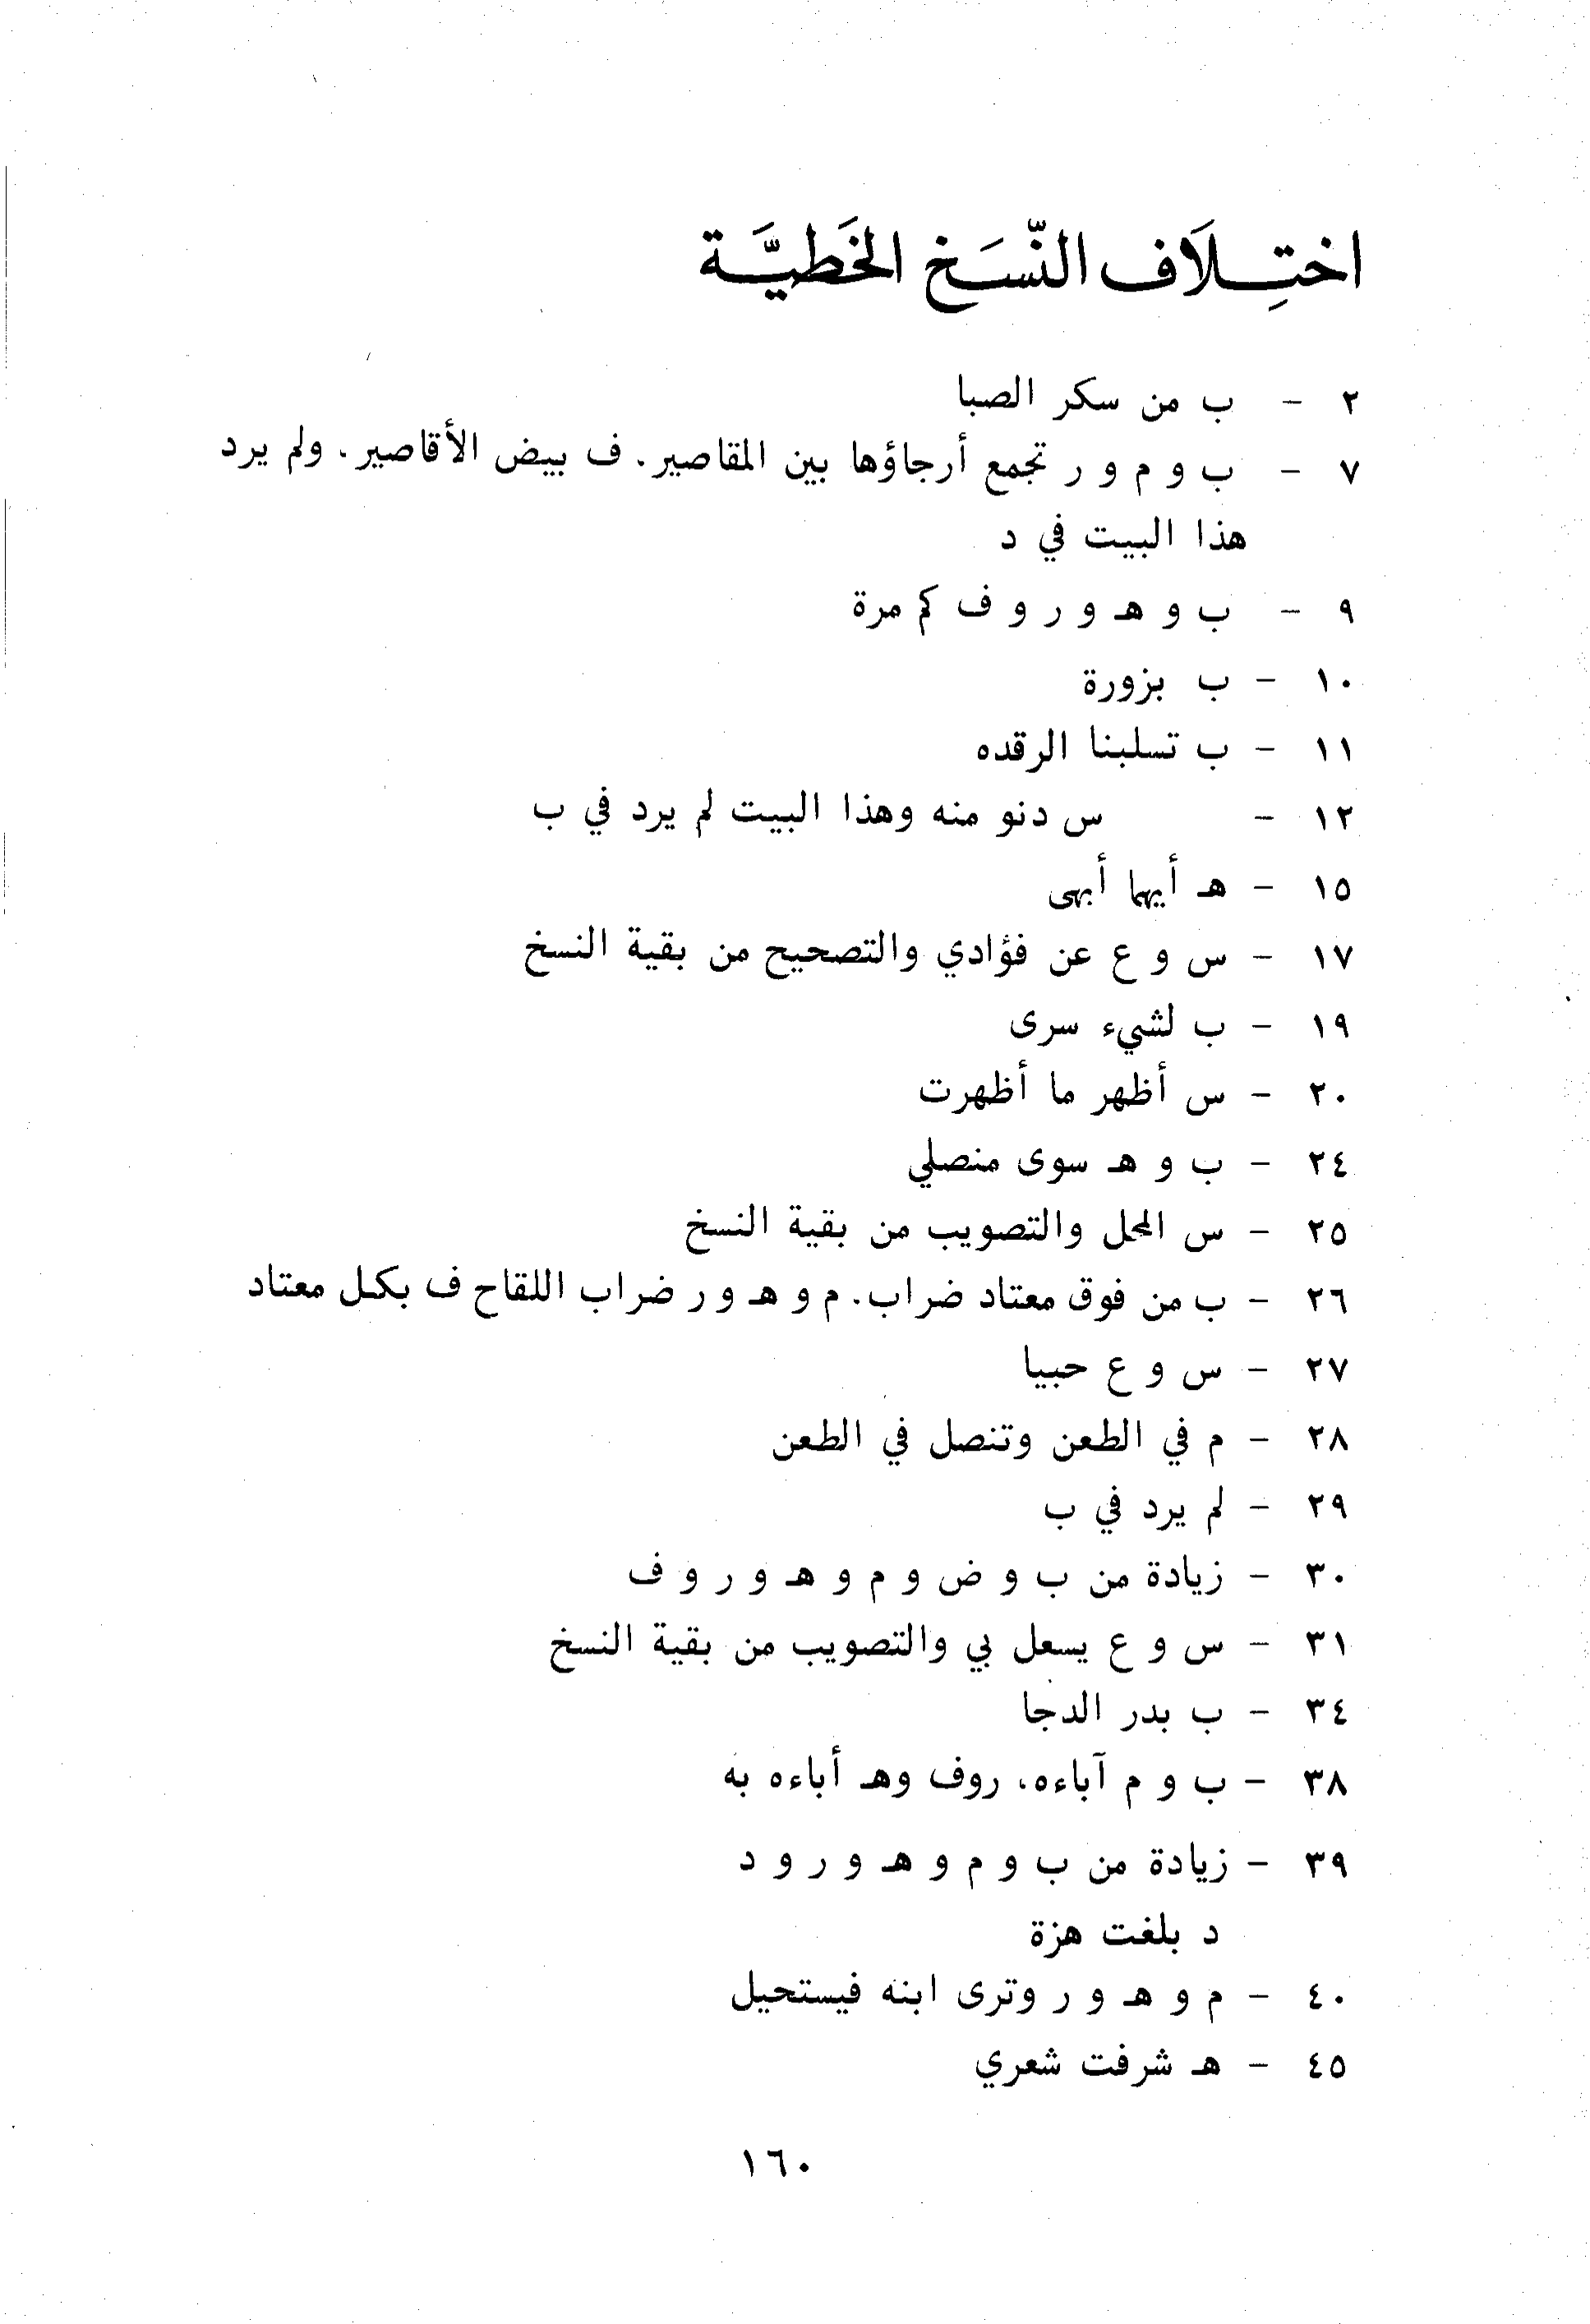 اختِلَاف النّسَخ الخَطيَّة
٢ - ب من سكر الصبا
٧ - ب و م و ر تجمع أرجاؤها بين المقاصير. ف بيض الأقاصير. ولم يرد
هذا البيت في د
٩ - ب و هـ و ر و ف كم مرة
١٠ - ب بزورة
١١ - ب تسلبنا الرقده
١٢ - س دنو منه وهذا البيت لم يرد في ب
١٥ - هـ أيهما أبهى
١٧ - س و ع عن فؤادي والتصحيح من بقية النسخ
١٩ - ب لشيء سرى
٢٠ - س أظهر ما أظهرت
٢٤ - ب و هـ سوى منصلي
٢٥ - س المحل والتصويب من بقية النسخ
٢٦ - ب من فوق معتاد ضراب. م و هـ و ر ضراب اللقاح ف بكل معتاد
٢٧ - س و ع حبيا
٢٨ - م في الطعن وتنصل في الطعن
٢٩ - لم يرد في ب
٣٠ - زيادة من ب و ض و م و هـ و ر و ف
٣١ - س و ع يسعل بي والتصويب من بقية النسخ
٣٤ - ب بدر الدجا
٣٨ - ب و م آباءه، روف وهـ أباءه به
٣٩ - زيادة من ب و م و هـ و ر و د
د بلغت هزة
٤٠ - م و هـ و ر وترى ابنه فيستحيل
٤٥ - هـ شرفت شعري
١٦٠